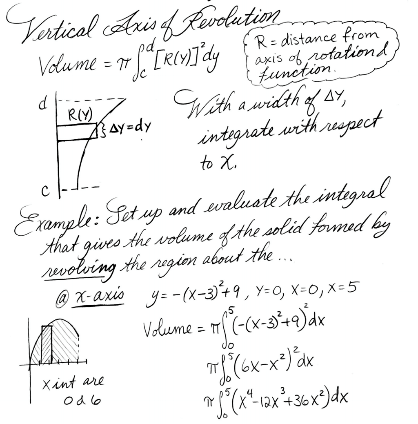 Vertical Axis of Revolution
Volume = π ∫_c^d [R(Y)]²dy
R = distance from
axis of rotation &
function.
d
R(Y)
} ΔY=dY
c
With a width of ΔY,
integrate with respect
to X.
Example: Set up and evaluate the integral
that gives the volume of the solid formed by
revolving the region about the ...
@ x-axis y=-(x-3)²+9, Y=0, X=0, X=5
Volume = π∫_0^5(-(x-3)²+9)²dx
π∫_0^5(6x-x²)²dx
π∫_0^5(x⁴-12x³+36x²)dx
x int are
0 & 6